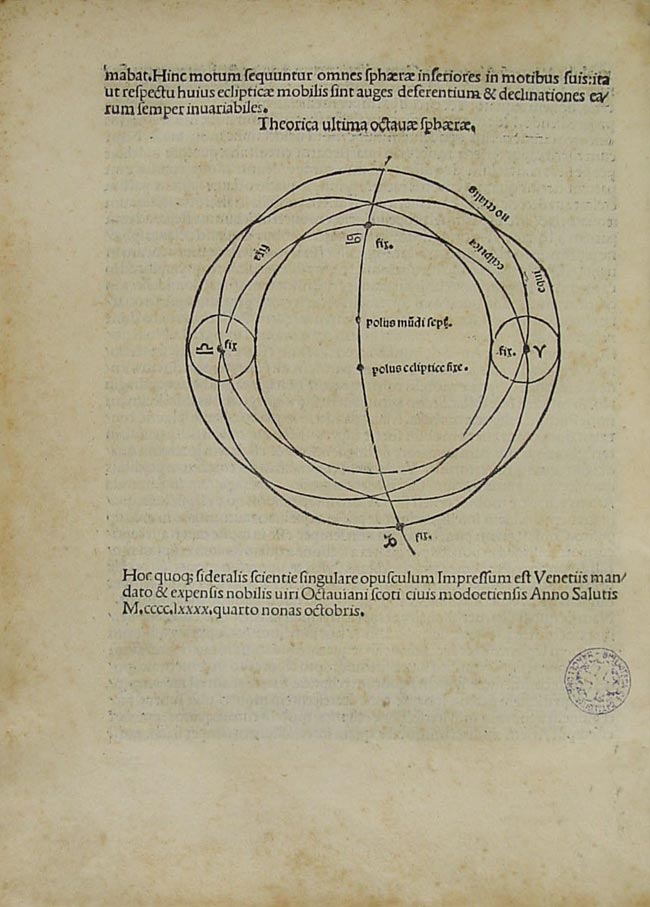 mabat. Hinc motum sequuntur omnes sphæræ inferiores in motibus suis: ita
ut respectu huius eclipticæ mobilis sint auges deferentium & declinationes ea/
rum semper inuariabiles.
Theorica ultima octauæ sphæræ.
noctialis
♋ fix.
fix
ecliptica
equi
polus mūdi
♎ fix
fix. ♈
polus ecliptice fixe.
♑ fix.
Hoc quoq; sideralis scientie singulare opusculum Impressum est Venetiis man/
dato & expensis nobilis uiri Octauiani scoti ciuis modoetiensis Anno Salutis
M.cccc.lxxxx. quarto nonas octobris.